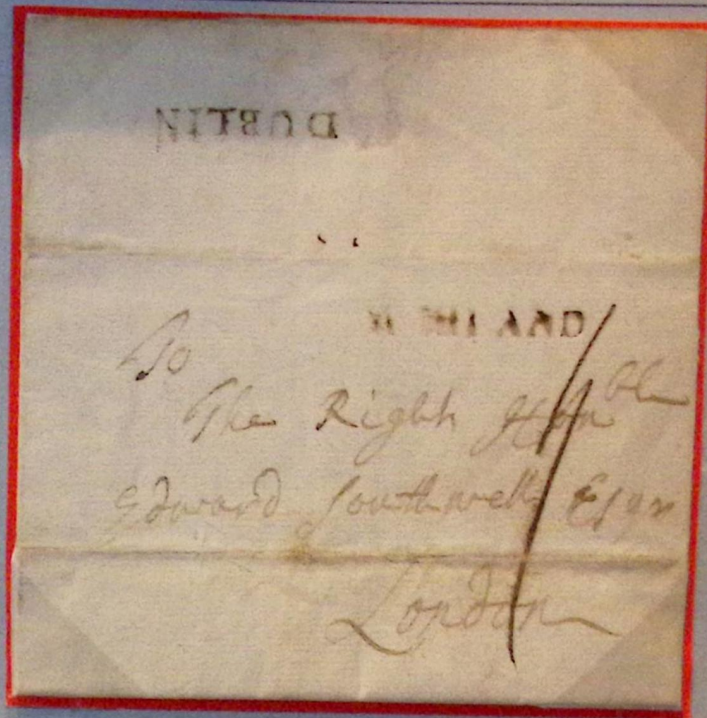 DUBLIN
To
The Right Honble
Edward Southwell Esqr
London